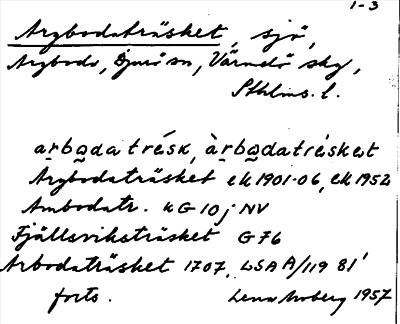 1-3
Argbodaträsket, sjö,
Argboda, Djurö sn, Värmdö skg,
Sthlms. l.
arboda trésk, àrbodatrésket
Argbodaträsket ek 1901-06, ek 1952
Ambodatr. KG 10j NV
Fjällsviksträsket G76
Arbodaträsket 1707, LSA A/119 81¹
forts. Lena Moberg 1957